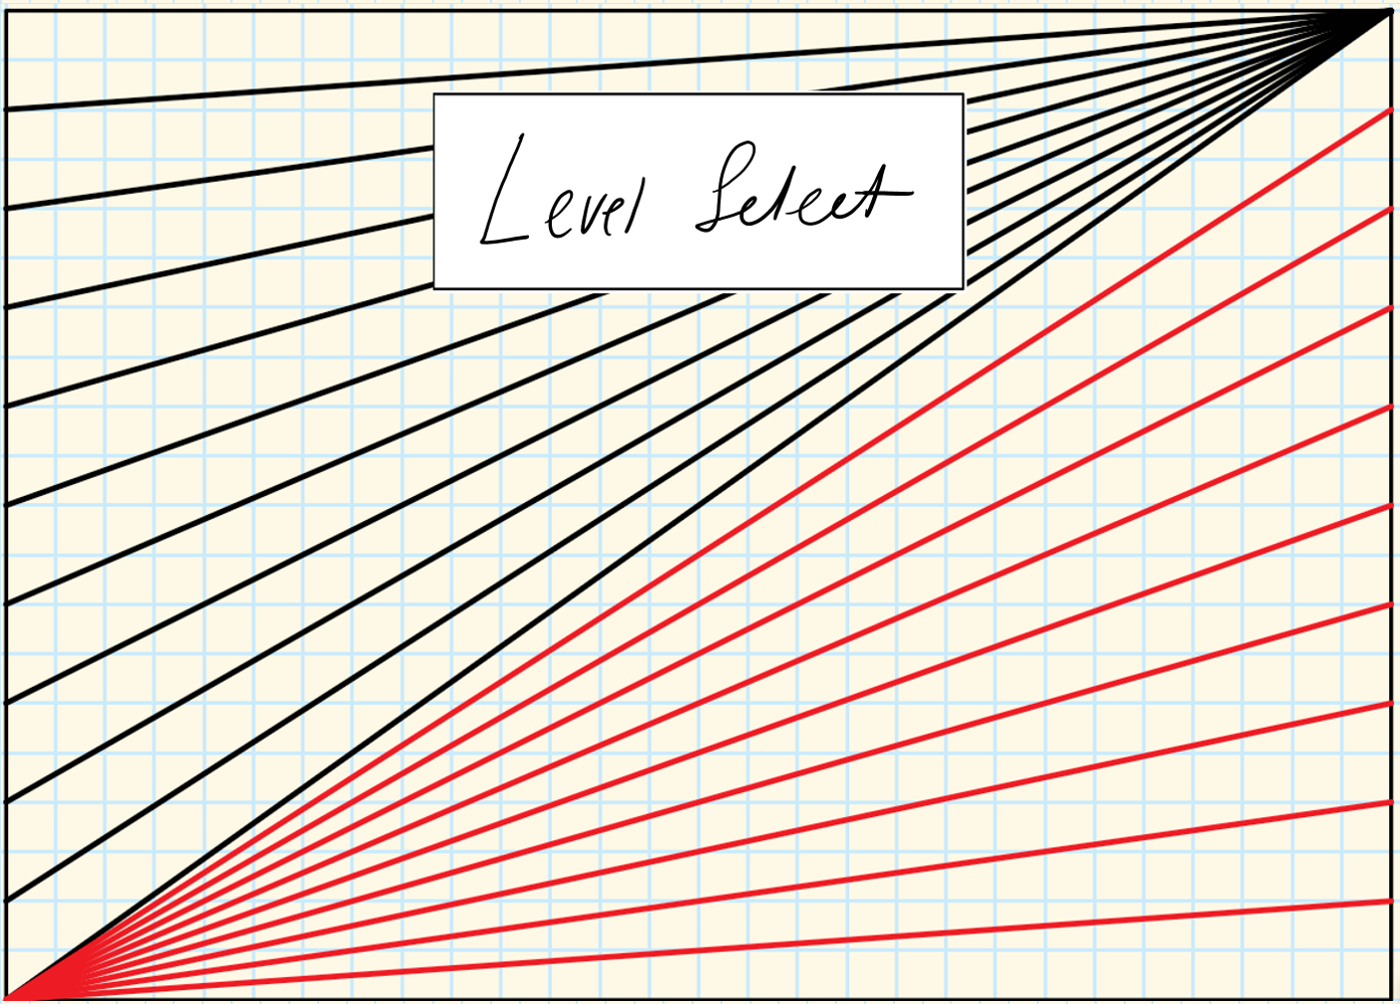 Level Select